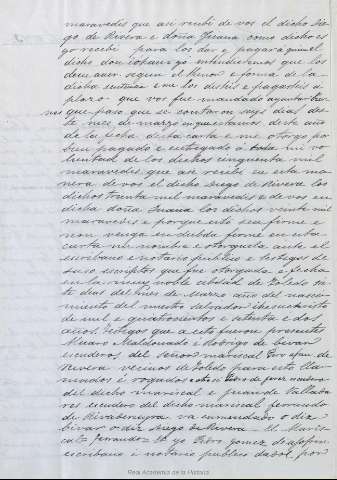 maravedis que asi recebi de vos el dicho Die
go de Rivera e doña Juana como dicho es
yo recebi para los dar e pagar a quien el
dicho don Johan yo entendieremos que los
deve aver segun el thenor e forma de la
dicha sentencia e me los distes e pagastes a
plazo que vos fue mandado
que para que se contaron seys dias des
te mes de marzo en que estamos deste año
de la fecha desta carta e me otorgo por
bien pagado e entregado a toda mi vo
luntad de los dichos cinquenta mil
maravedis que asi recebi en esta ma
nera de vos el dicho Diego de Rivera los
dichos treinta mil maravedis e de vos en
dicha doña Juana los dichos veinte mil
maravedis e porque esto sea firme e
non venga en dubda firmé en esta
carta mi nombre e otorguela ante el
escribano e notario publico e testigos de
suso escriptos que fue otorgada e fecha
en la muy noble cibdad de Toledo
dias del mes de Marzo año del nasci
miento del nuestro Salvador Jhesuchristo
de mil e quatrocientos e setenta e dos
años. Testigos que a esto fueron presentes
Alvaro Maldonado e Rodrigo de Bivar
escuderos del Señor mariscal Perafan de
Rivera vecinos de Toledo para esto lla
mados e rogados e otro si Pedro de
del dicho mariscal e Juan de
res escudero del dicho mariscal fernando
de Rivadeneyra va enmendado o diz
bivar o diz Diego de Rivera El Maris
cal Fernando Et yo Pedro Gomez
escribano e notario publico por
Real Academia de la Historia